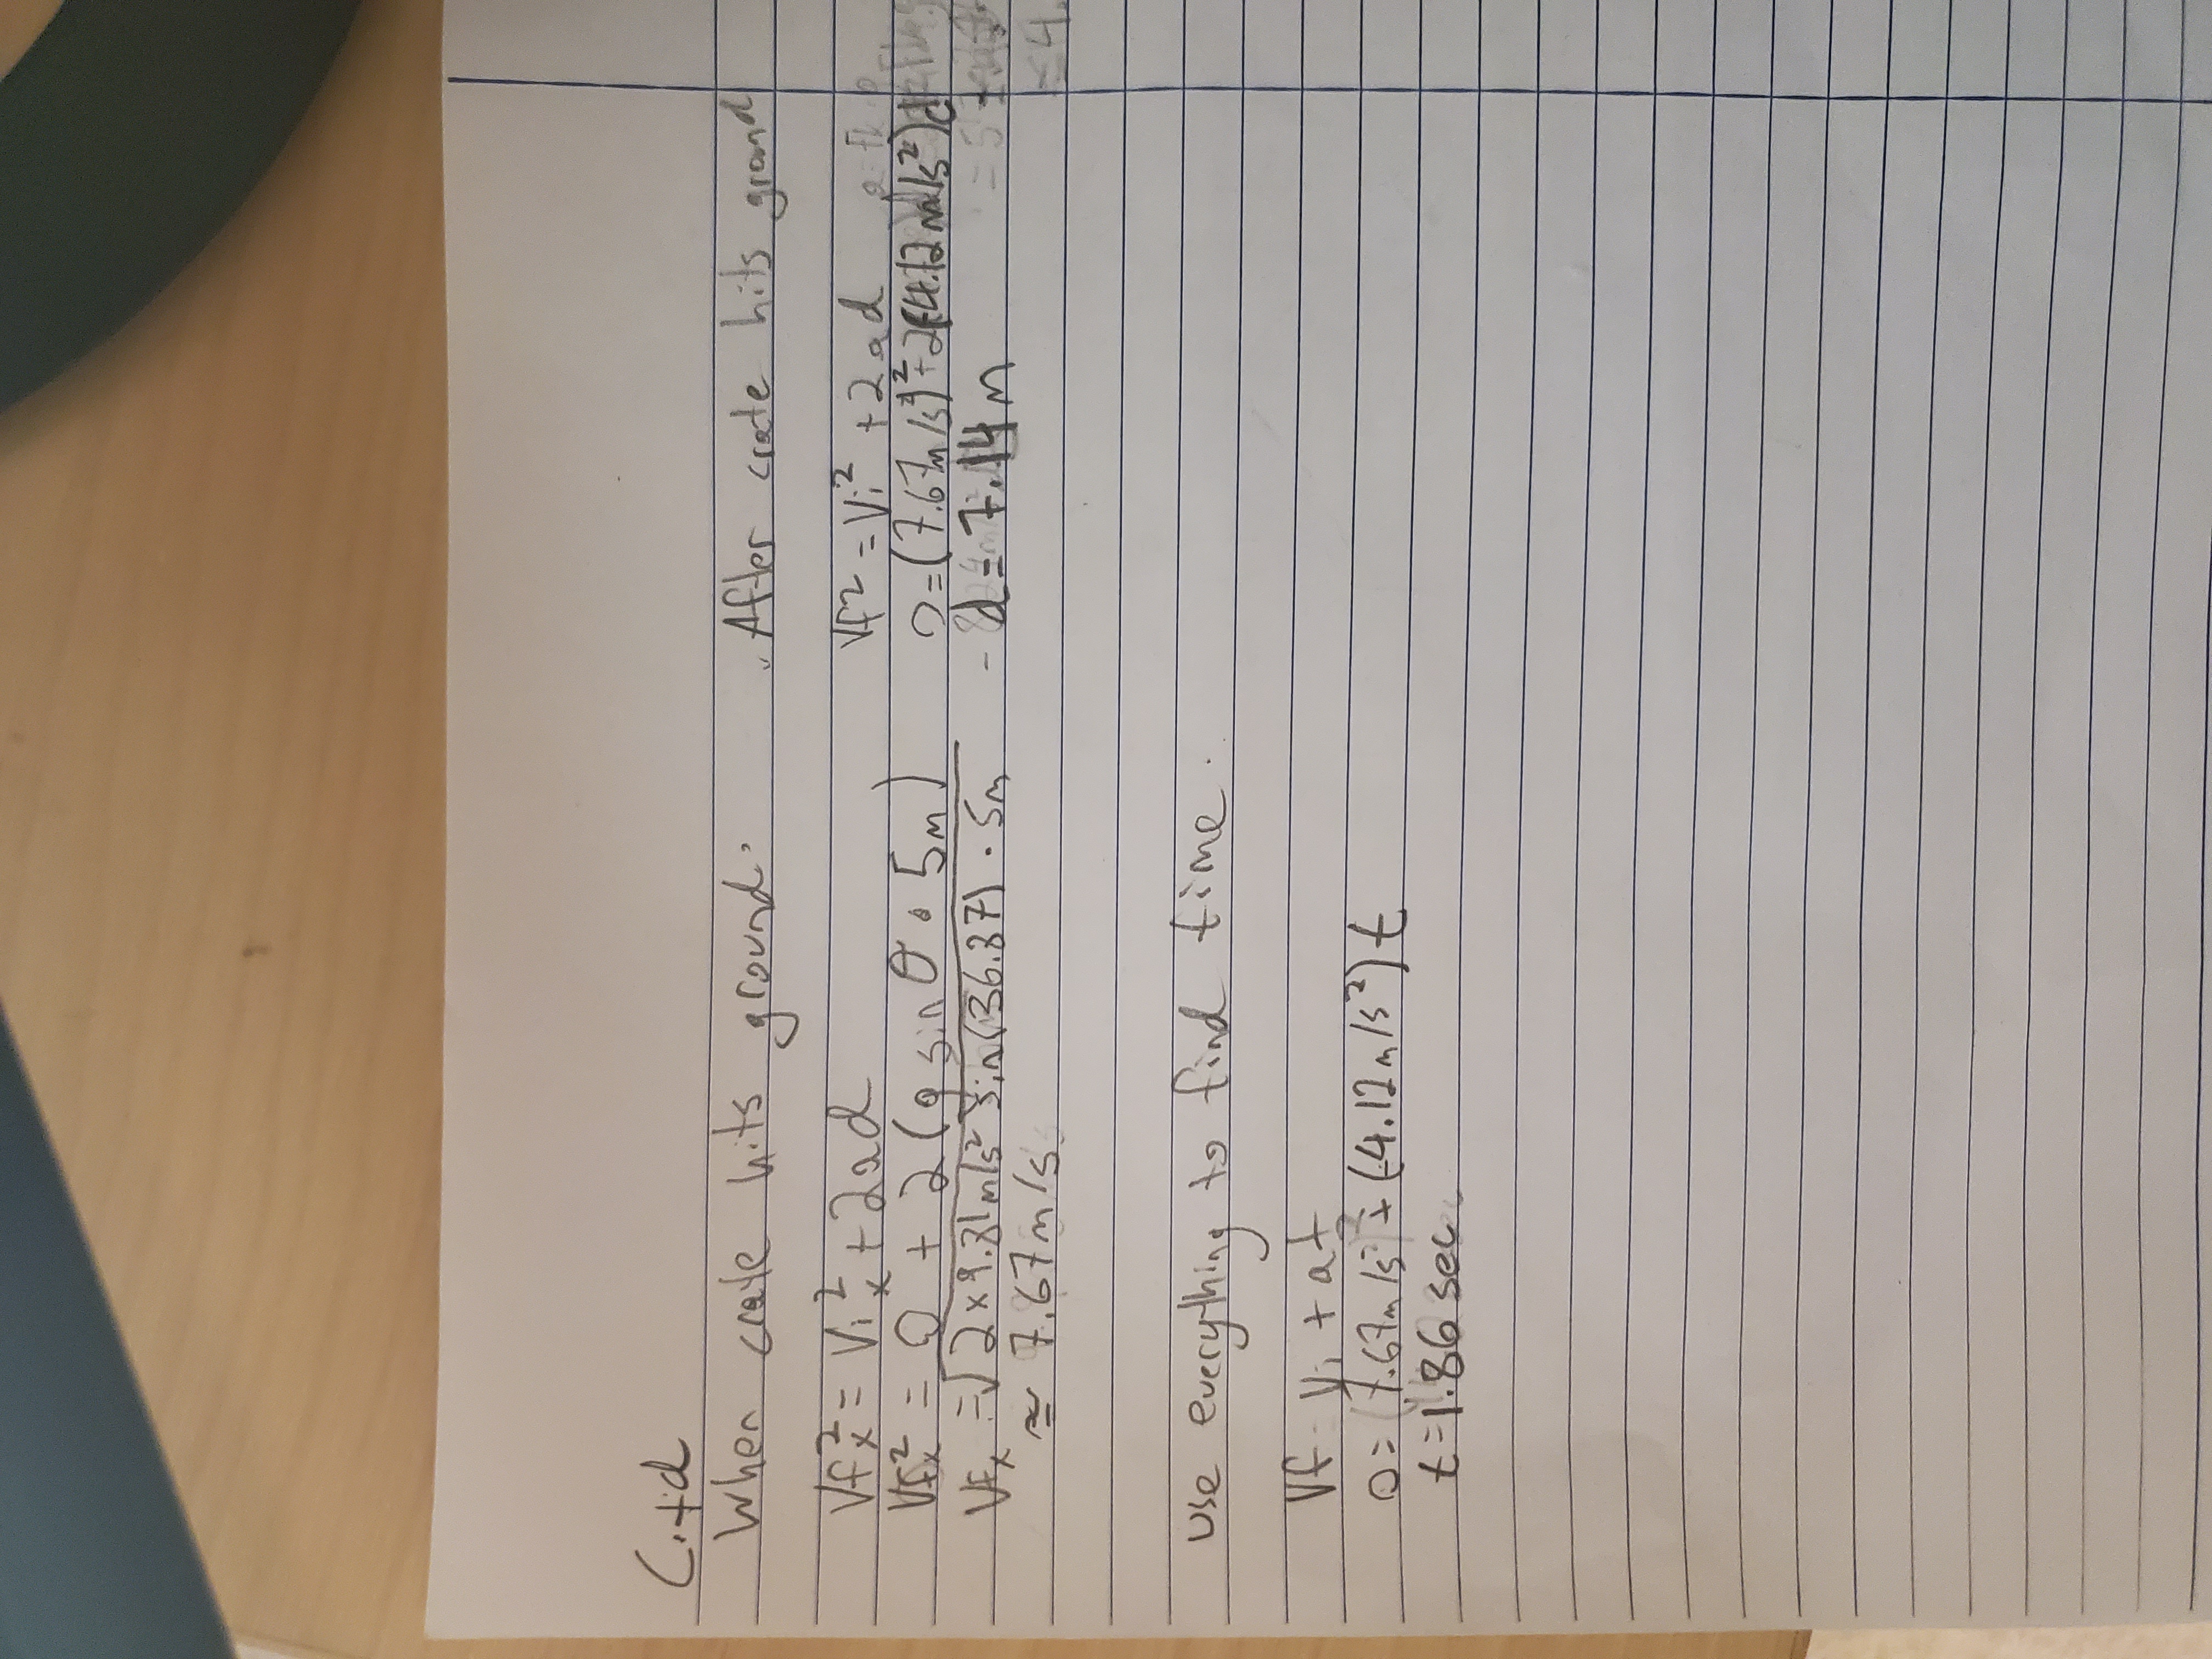 C.+d
When crate hits ground.
Vfx² = Vix² + 2ad
Vfx² = 0 + 2(g sin θ • 5m)
Vfx = √2 x 9.81m/s² sin(36.87) · 5m
≈ 7.67m/s
After crate hits ground
Vf² = Vi² + 2ad
0 = (7.67m/s)² + 2(-4.12m/s²)d
d = 7.14m
use everything to find time.
Vf = Vi + at
0 = 7.67m/s + (-4.12m/s²)t
t=1.86 sec